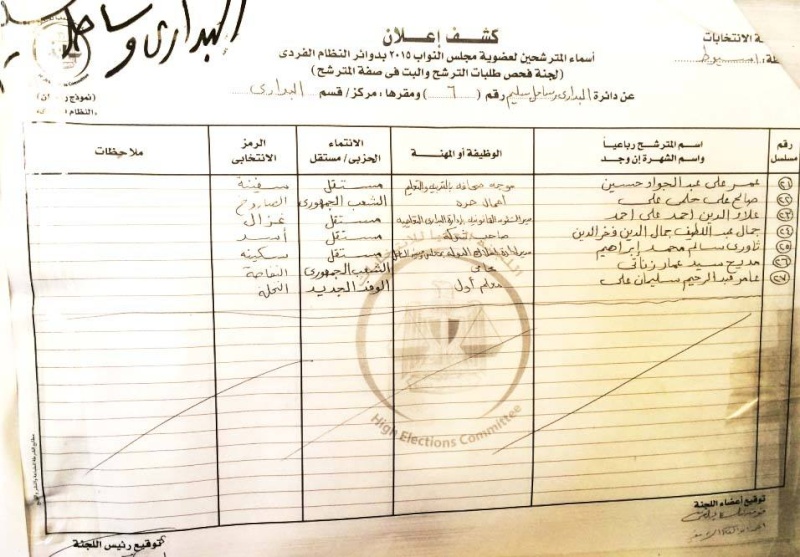 البدارى وساحل سليم
كشف إعلان
أسماء المترشحين لعضوية مجلس النواب ٢٠١٥ بدوائر النظام الفردى
(لجنة فحص طلبات الترشح والبت فى صفة المترشح)
عن دائرة البدارى وساحل سليم رقم (٦) ومقرها: مركز/ قسم البدارى
ة الانتخابات
ظة: أسيوط
(نموذج
النظام
رقم مسلسل | اسم المترشح رباعياً واسم الشهرة إن وجد | الوظيفة أو المهنة | الانتماء الحزبى/ مستقل | الرمز الانتخابى | ملاحظات
٢١ عمر على عبد الجواد حسين موجه صحافة بالتربية والتعليم مستقل سفينة
٢٢ صالح على حلمى على أعمال حرة الشعب الجمهورى الصاروخ
٢٣ علاء الدين احمد على احمد مدير الشئون القانونية بإدارة البدارى التعليمية مستقل غزال
٢٤ جمال عبد اللطيف جمال الدين فخر الدين صاحب شركة مستقل أسد
٢٥ سالم محمد إبراهيم مدير إدارة أملاك الدولة مستقل سكينة
٢٦ مديح سيد عمار زناتى محامى الشعب الجمهورى
٢٧ عامر عبد الرحيم سليمان على معلم أول الوفد الجديد النخلة
High Elections Committee
توقيع أعضاء اللجنة
توقيع رئيس اللجنة